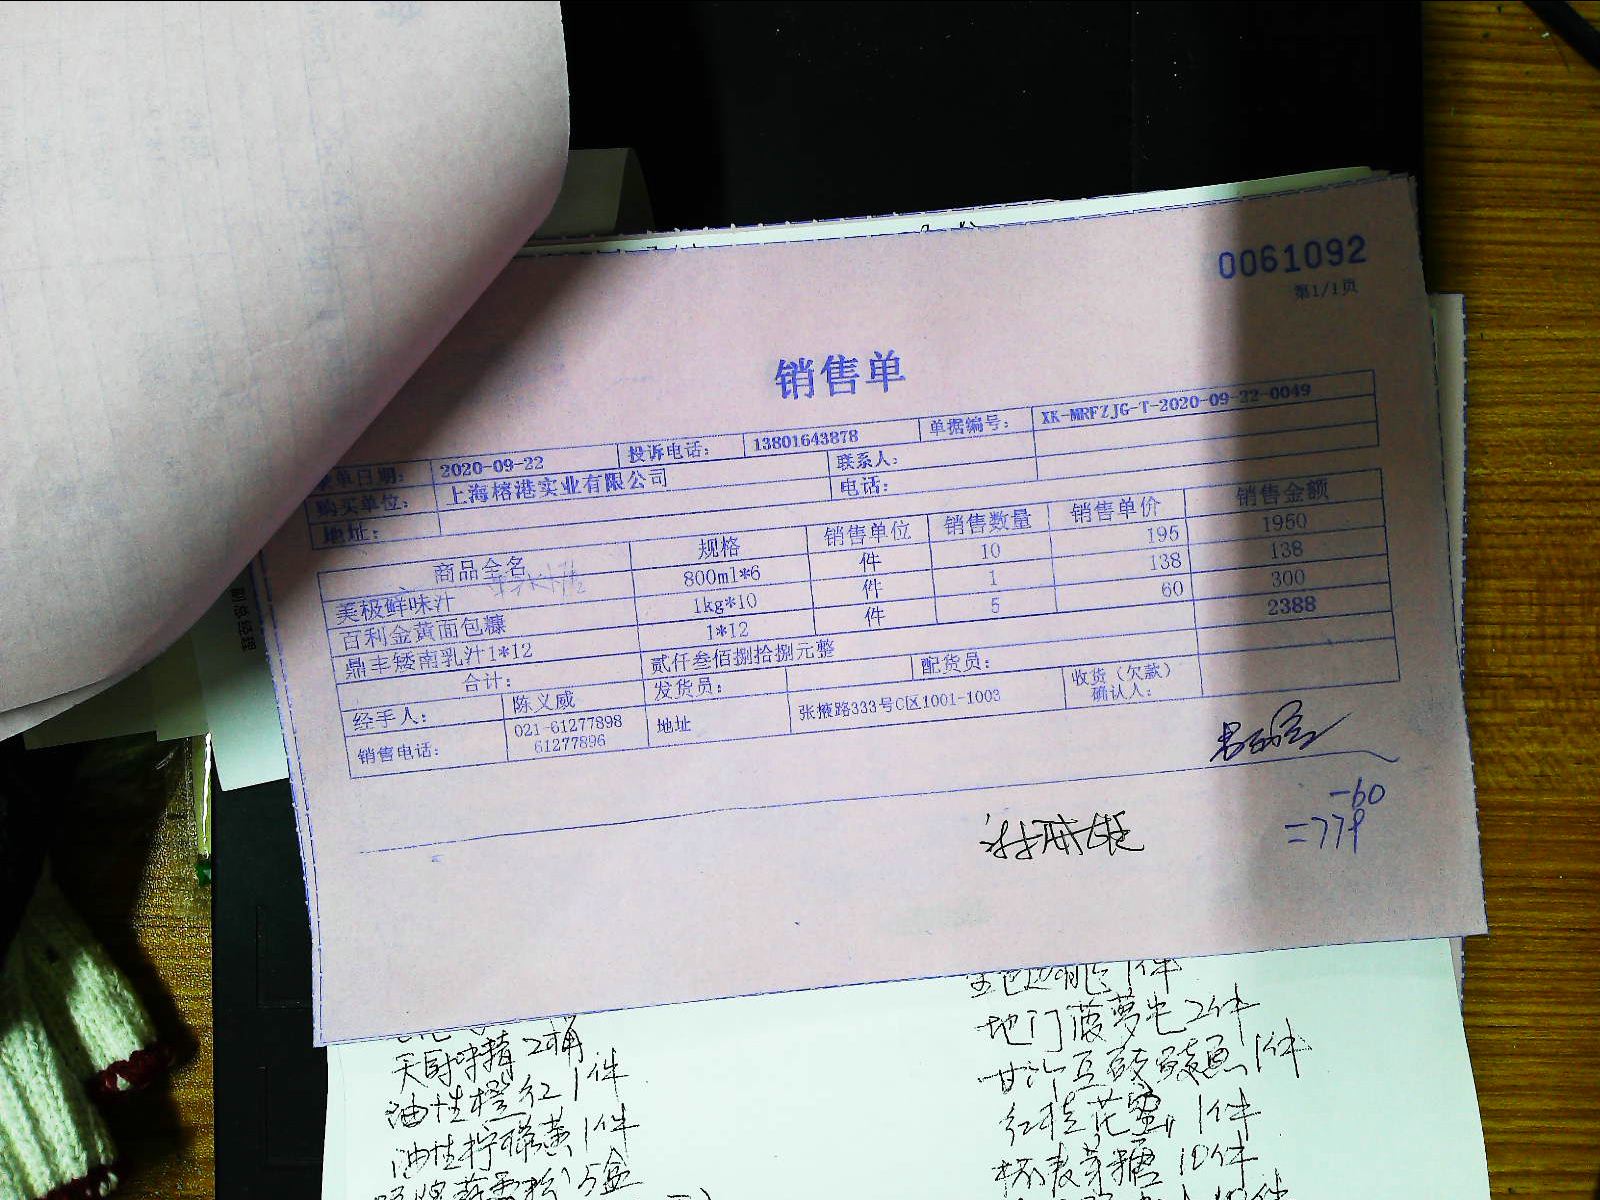 0061092
第1/1页
销售单
单日期: 2020-09-22 投诉电话: 13801643878 单据编号: XK-MRFZJG-T-2020-09-22-0049
购买单位: 上海榕港实业有限公司 联系人:
地址: 电话:
商品全名 规格 销售单位 销售数量 销售单价 销售金额
美极鲜味汁 800ml*6 件 10 195 1950
百利金黄面包糠 1kg*10 件 1 138 138
鼎丰矮南乳汁1*12 1*12 件 5 60 300
合计: 贰仟叁佰捌拾捌元整 2388
经手人: 陈义威 发货员: 配货员: 收货（欠款）确认人:
销售电话: 021-61277898 61277896 地址 张掖路333号C区1001-1003
-60
=779
副总经理
天厨味精2桶
油性橙红1件
油性柠檬黄1件
5盒
1件
地门菠萝2件
甘竹豆豉鲮鱼1件
红桂花蜜1件
麦芽糖10件